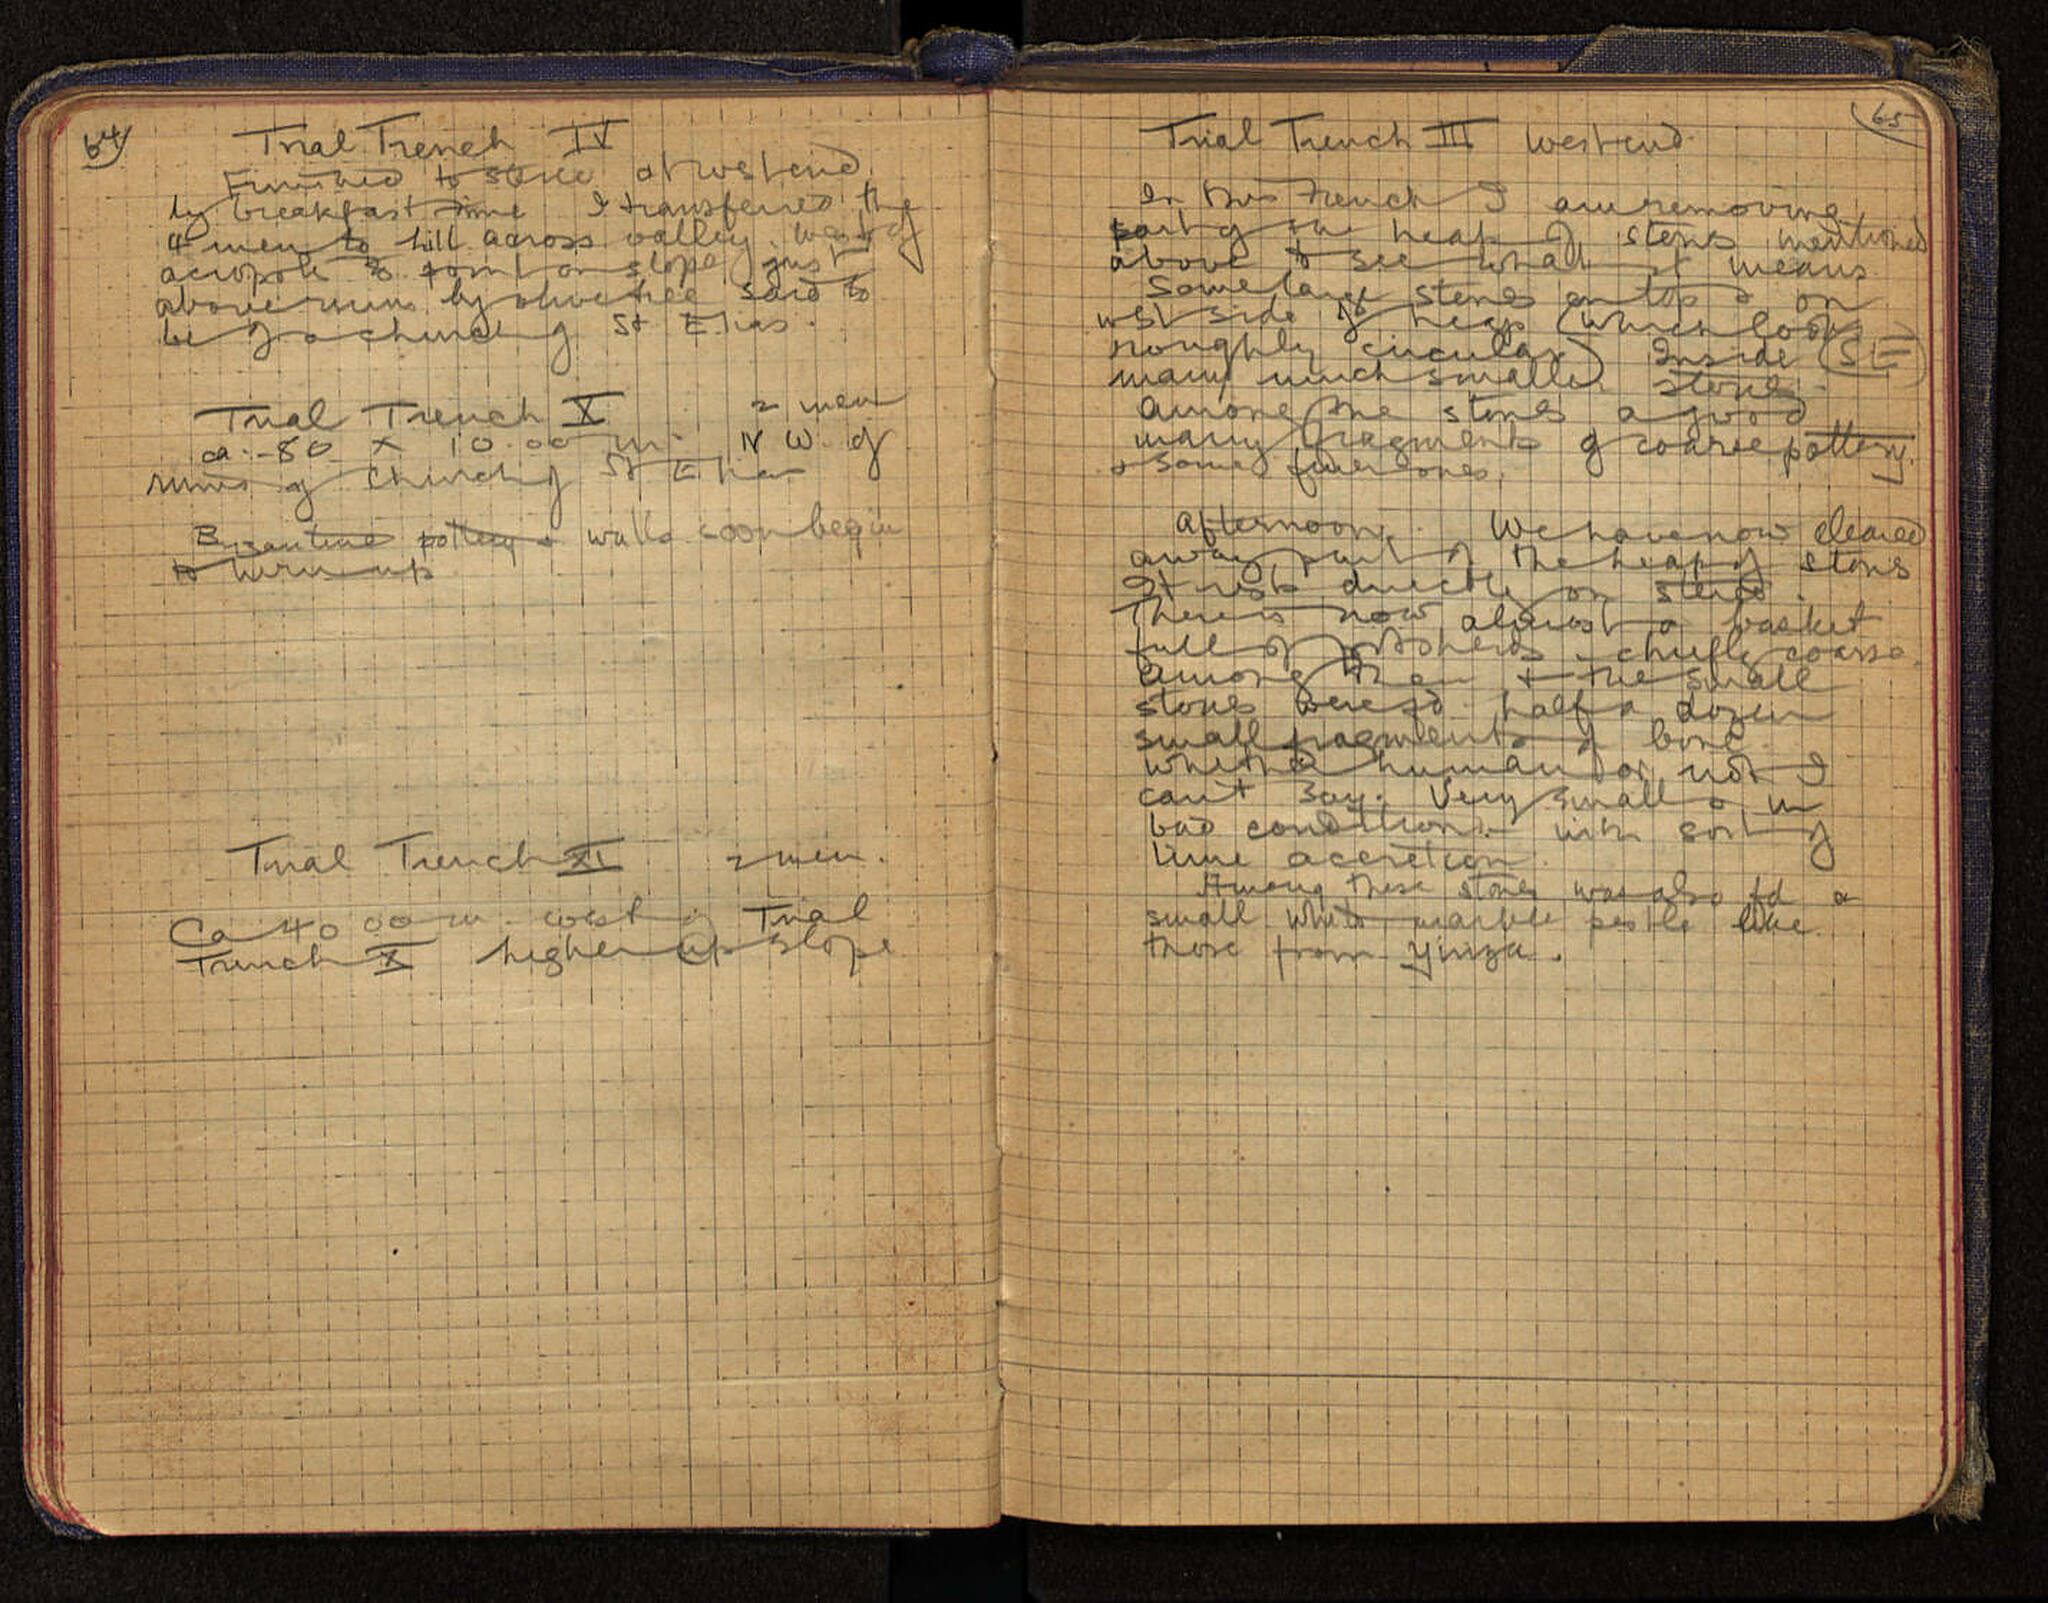 64
Trial Trench IV
Finished to stereo at west end
by breakfast time I transferred the
4 men to hill across valley west of
acropolis to point on slope just
above ruins by olive tree said to
be of a church of St Elias.
Trial Trench X 2 men
ca. -80 x 10.00 m. N W. of
ruins of church of St Elias
Byzantine pottery & walls soon begin
to turn up
Trial Trench XI 2 men.
Ca 40 00 m. west of Trial
Trench X higher up slope
65
Trial Trench III West end.
In this Trench I am removing
part of the heap of stones mentioned
above to see what it means
Some large stones on top & on
west side of heap (which looks
roughly circular) Inside (SE)
many much smaller stones.
Among the stones a good
many fragments of coarse pottery.
& some finer ones.
Afternoon. We have now cleared
away part of the heap of stones
It rests directly on stereo.
There is now almost a basket
full of potsherds - chiefly coarse.
Among them & the small
stones were fd. half a dozen
small fragments of bone
whether human or not I
can't say. Very small & in
bad condition - with sort of
lime accretion.
Among these stones was also fd a
small white marble pestle like
those from Yiriza.